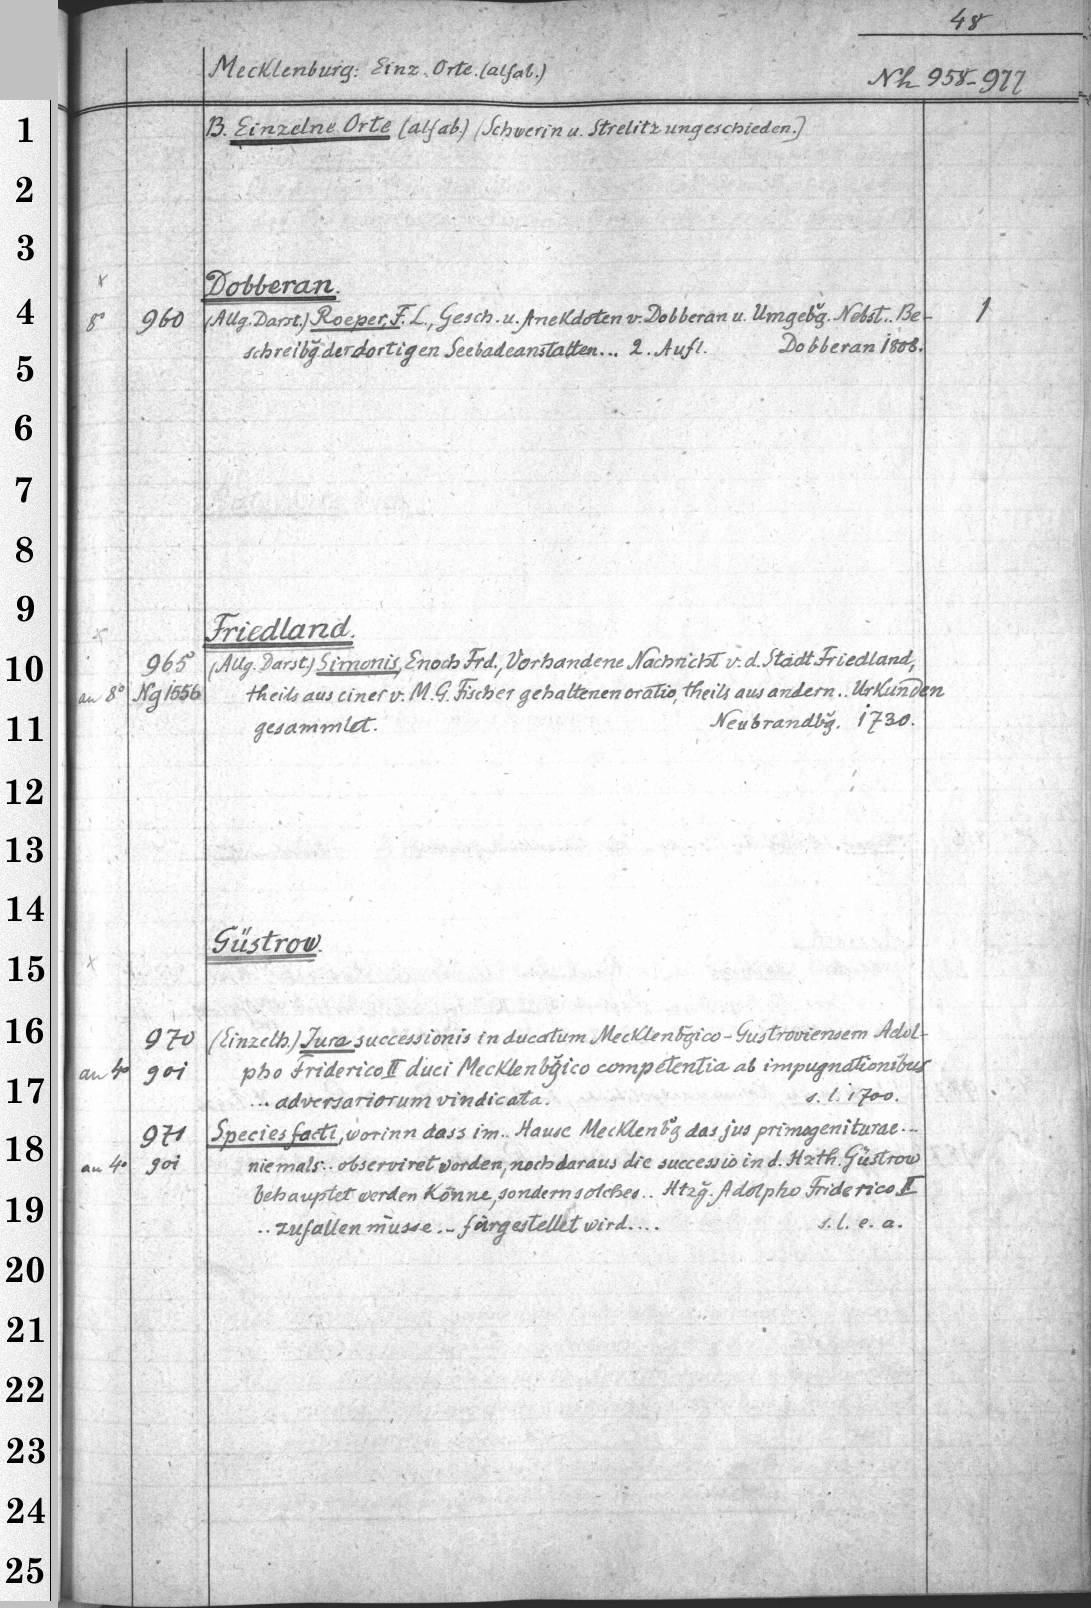 48
Mecklenburg: Einz. Orte. (alfab.)
Nh 958-977
1 B. Einzelne Orte (alfab.) (Schwerin u. Strelitz ungeschieden.)
2
3
x Dobberan.
4 8° 960 (Allg. Darst.) Roeper, F. L., Gesch. u. Anekdoten v. Dobberan u. Umgebg̃. Nebst.. Be- 1
5 schreibg̃ der dortigen Seebadeanstalten... 2. Aufl. Dobberan 1808.
6
7
8
9 Friedland.
x
10 965 (Allg. Darst.) Simonis, Enoch Frd., Vorhandene Nachricht v. d. Stadt Friedland,
an 8° Ng 1556 theils aus einer v. M. G. Fischer gehaltenen oratio, theils aus andern.. Urkunden
11 gesammlet. Neubrandbg̃. 1730.
12
13
14
Güstrow.
15 x
16 970 (Einzelh.) Jura successionis in ducatum Mecklenbgico-Gustroviensem Adol-
an 4° 901 pho Friderico II duci Mecklenbg̃ico competentia ab impugnationibus
17 ... adversariorum vindicata. s. l. 1700.
18 971 Species facti, worinn dass im.. Hause Mecklenbg̃ das jus primogeniturae...
an 4° 901 niemals.. observiret worden, noch daraus die successio in d. Hzth. Güstrow
behauptet werden könne, sondern solches.. Htzg̃. Adolpho Friderico II
19 .. zufallen müsse... fürgestellet wird.... s. l. e. a.
20
21
22
23
24
25